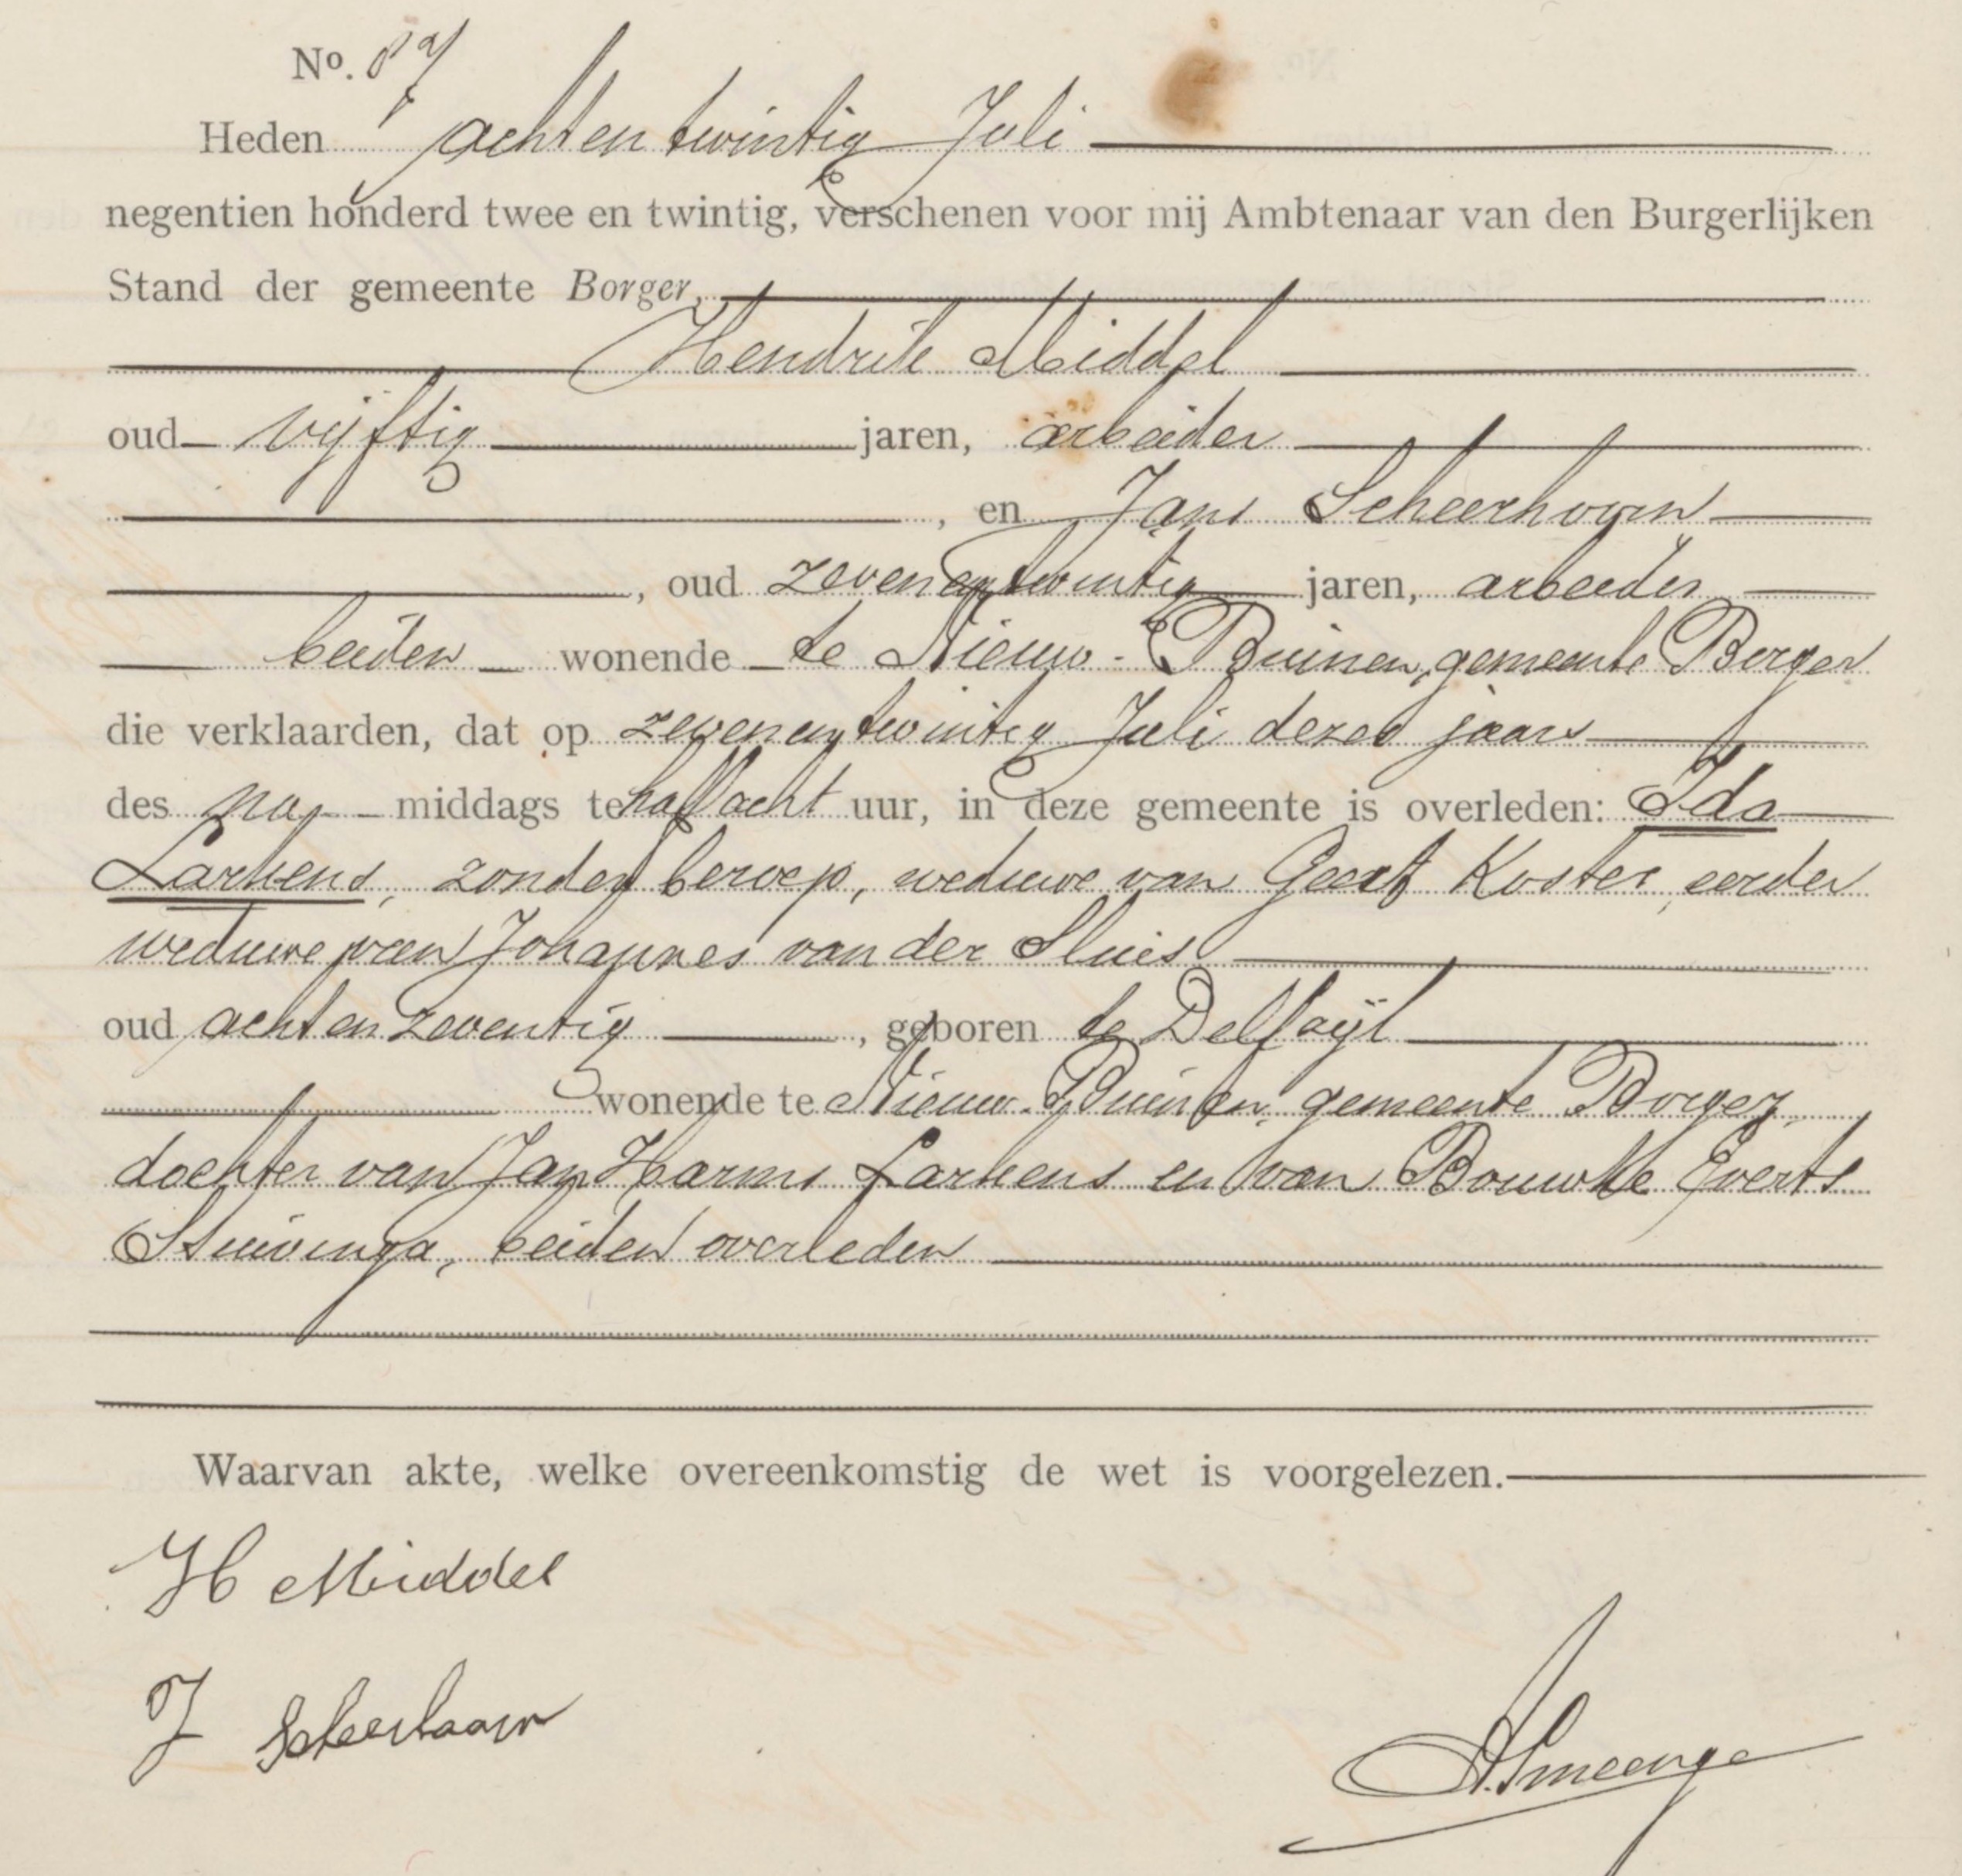 No. 87
Heden achtentwintig Juli
negentien honderd twee en twintig, verschenen voor mij Ambtenaar van den Burgerlijken
Stand der gemeente Borger,
Hendrik Middel
oud vijftig jaren, arbeider
, en Jans Scheerhoorn
, oud zevenentwintig jaren, arbeider
beiden wonende te Nieuw-Buinen, gemeente Borger
die verklaarden, dat op zevenentwintig Juli dezes jaars
des na middags te half acht uur, in deze gemeente is overleden: Ida
Larkens, zonder beroep, weduwe van Geert Koster, eerder
weduwe van Johannes van der Sluis
oud achtenzeventig, geboren te Delfzijl
wonende te Nieuw-Buinen, gemeente Borger,
dochter van Jan Harms Larkens en van Bouwke Everts
Stuivinga, beiden overleden
Waarvan akte, welke overeenkomstig de wet is voorgelezen.
H Middel
J Scheerhoorn
A. Smeenge